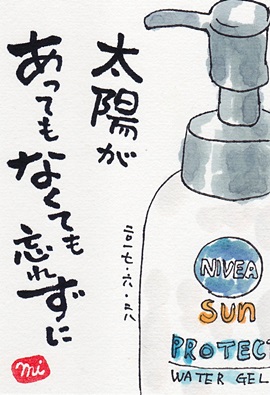 太陽が
あっても
なくても
忘れずに
二〇一七・六・二八
NIVEA
sun
PROTECT
WATER GEL
mi